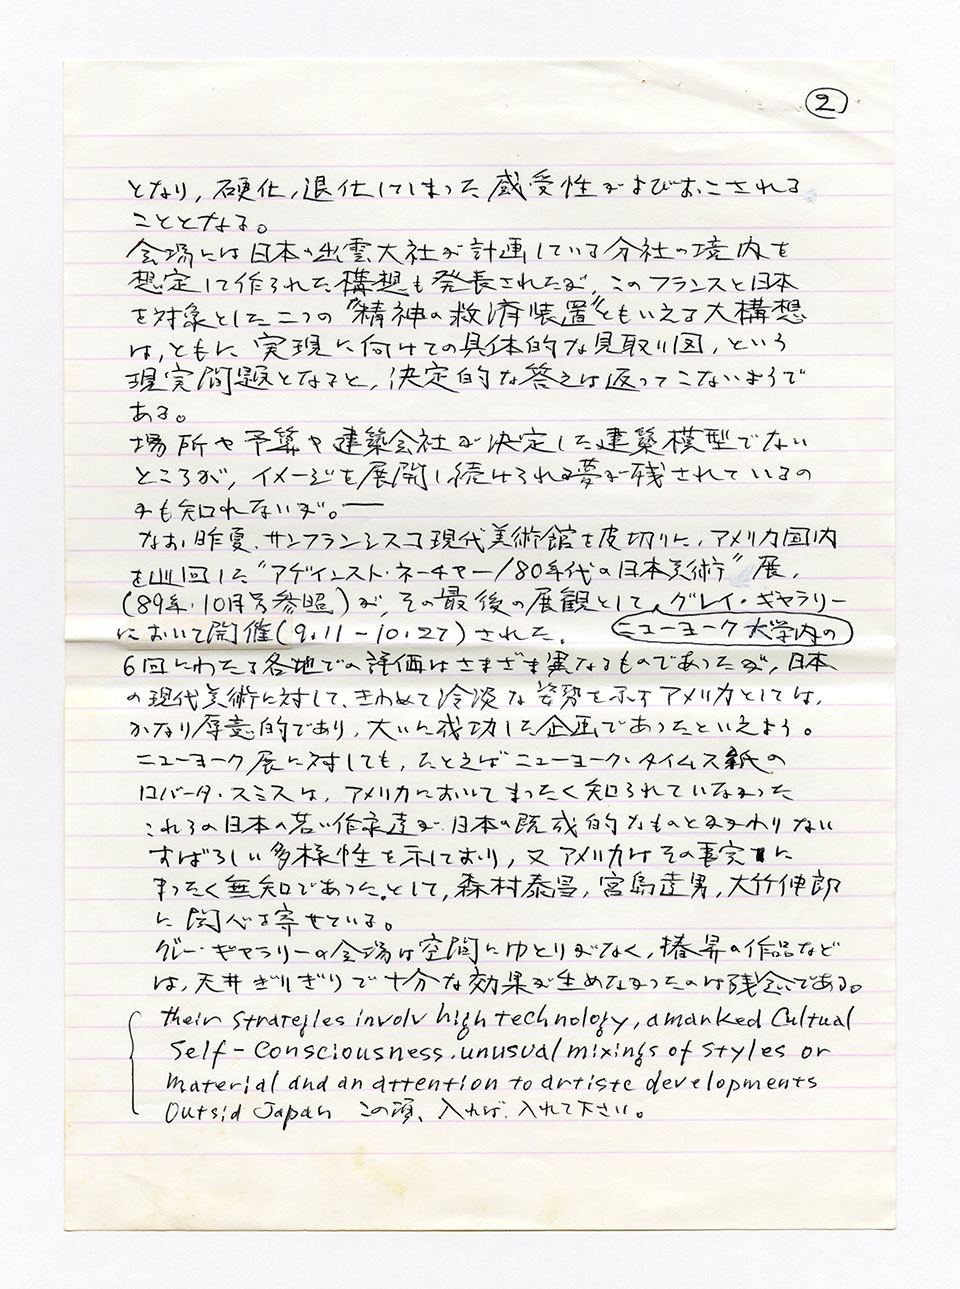 ②
となり，硬化，退化してしまった感受性がよびおこされる
こととなる。
会場には日本の出雲大社が計画している分社の境内を
想定して作られた構想も発表されたが，このフランスと日本
を対象とした二つの〝精神の救済装置〟ともいえる大構想
は，ともに実現に向けての具体的な見取り図，という
現実問題となると，決定的な答えは返ってこないようで
ある。
場所や予算や建築会社が決定した建築模型でない
ところが，イメージを展開し続けられる夢が残されているの
かも知れないが。──
なお，昨夏，サンフランシスコ現代美術館を皮切りに，アメリカ国内
を巡回した〝アゲインスト・ネーチャー/80年代の日本美術〟展，
(89年・10月号参照)が，その最後の展観として，グレイ・ギャラリー
において開催(9.11-10.27)された。 ニューヨーク大学内の
6回にわたる各地での評価はさまざま異なるものであったが，日本
の現代美術に対して，きわめて冷淡な姿勢を示すアメリカとしては，
かなり厚意的であり，大いに成功した企画であったといえよう。
ニューヨーク展に対しても，たとえばニューヨーク・タイムス紙の
ロバータ・スミスは，アメリカにおいてまったく知られていなかった
これらの日本の若い作家達が，日本の既成的なものとかかわりない
すばらしい多様性を示しており，又アメリカはその事実に
まったく無知であった，として，森村泰昌，宮島達男，大竹伸郎
に関心を寄せている。
グレー・ギャラリーの会場は空間にゆとりがなく，椿昇の作品など
は，天井ぎりぎりで十分な効果が生めなかったのは残念である。
their strategies involv high technology, a manked Cultual
Self-Consciousness, unusual mixings of styles or
material and an attention to artiste developments
Outsid Japan この項，入れば，入れて下さい。